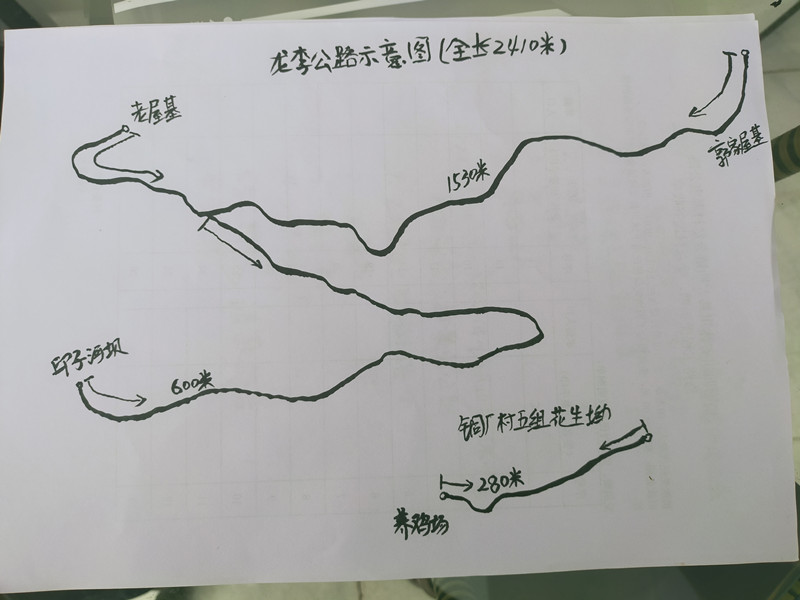 龙李公路示意图(全长2410米)
老屋基
郭家屋基
1530米
印子河坝
600米
铜厂村五组花生坳
280米
养鸡场